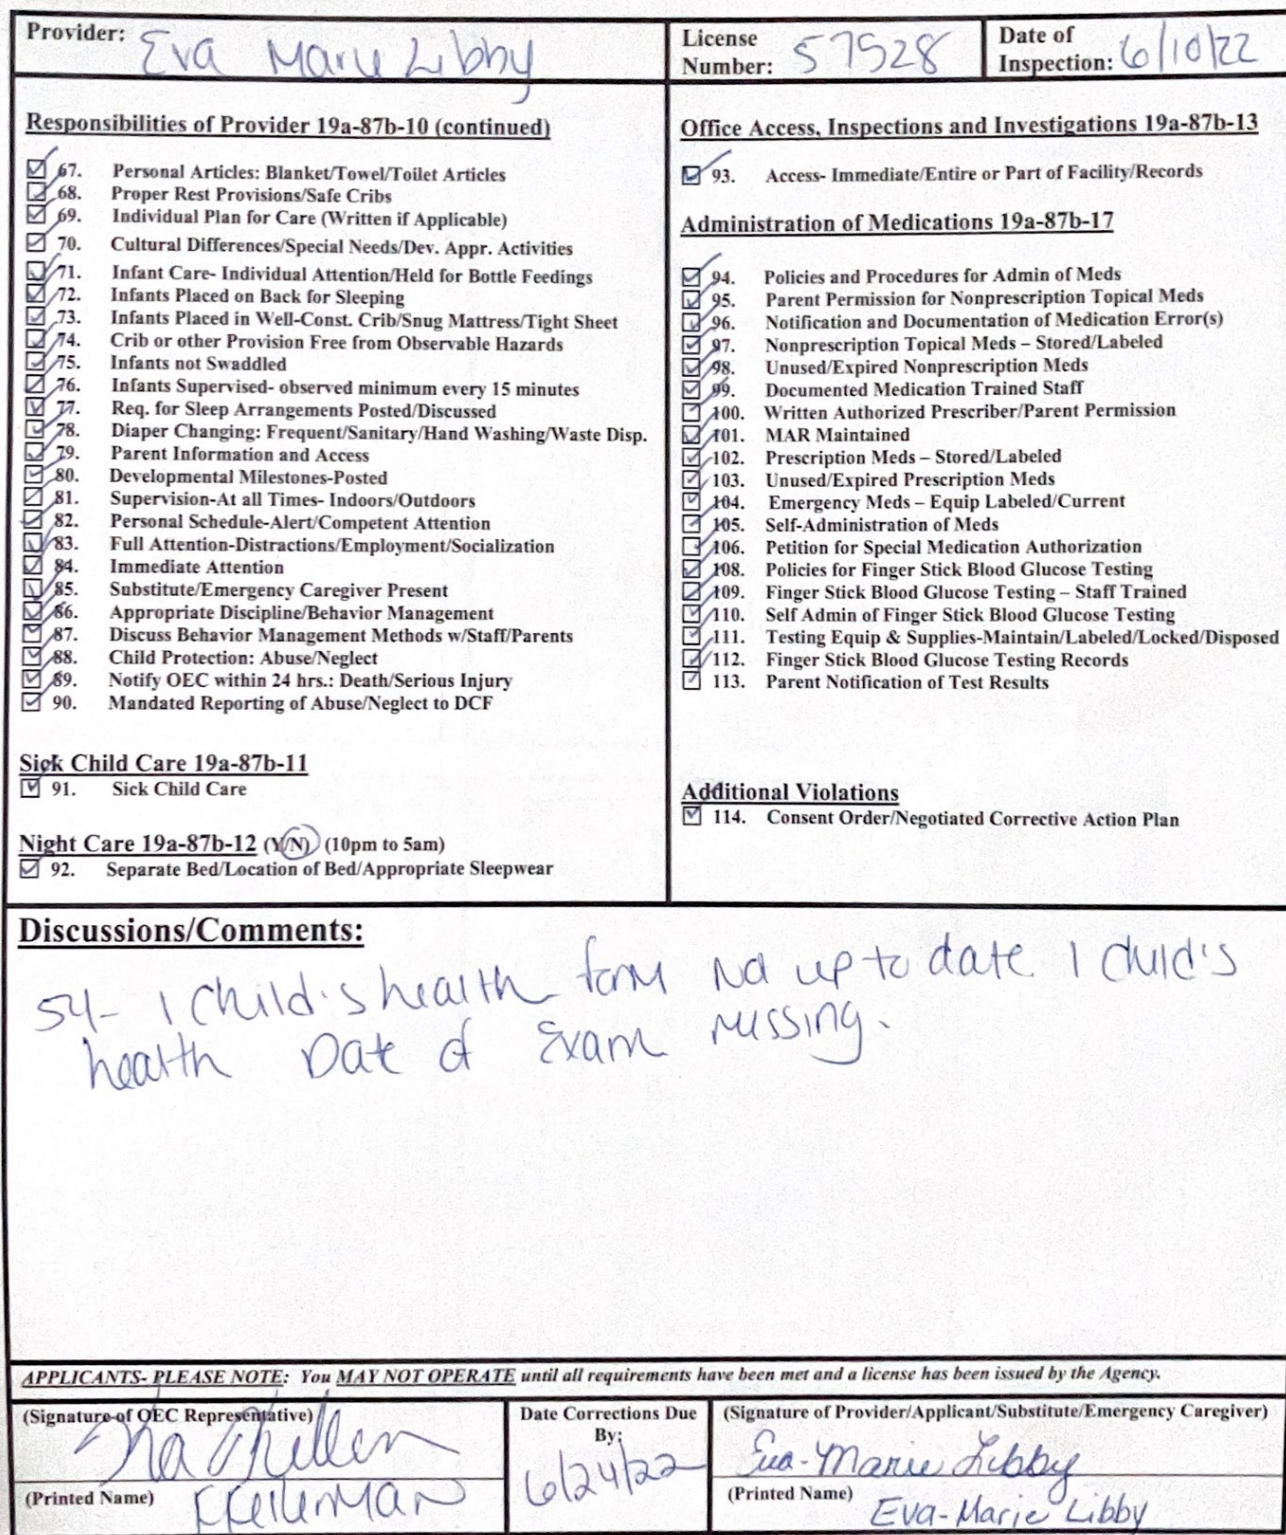 Provider: Eva Marie Libby
License Number: 57528
Date of Inspection: 6/10/22
Responsibilities of Provider 19a-87b-10 (continued)
67. Personal Articles: Blanket/Towel/Toilet Articles
68. Proper Rest Provisions/Safe Cribs
69. Individual Plan for Care (Written if Applicable)
70. Cultural Differences/Special Needs/Dev. Appr. Activities
71. Infant Care- Individual Attention/Held for Bottle Feedings
72. Infants Placed on Back for Sleeping
73. Infants Placed in Well-Const. Crib/Snug Mattress/Tight Sheet
74. Crib or other Provision Free from Observable Hazards
75. Infants not Swaddled
76. Infants Supervised- observed minimum every 15 minutes
77. Req. for Sleep Arrangements Posted/Discussed
78. Diaper Changing: Frequent/Sanitary/Hand Washing/Waste Disp.
79. Parent Information and Access
80. Developmental Milestones-Posted
81. Supervision-At all Times- Indoors/Outdoors
82. Personal Schedule-Alert/Competent Attention
83. Full Attention-Distractions/Employment/Socialization
84. Immediate Attention
85. Substitute/Emergency Caregiver Present
86. Appropriate Discipline/Behavior Management
87. Discuss Behavior Management Methods w/Staff/Parents
88. Child Protection: Abuse/Neglect
89. Notify OEC within 24 hrs.: Death/Serious Injury
90. Mandated Reporting of Abuse/Neglect to DCF
Sick Child Care 19a-87b-11
91. Sick Child Care
Night Care 19a-87b-12 (Y/N) (10pm to 5am)
92. Separate Bed/Location of Bed/Appropriate Sleepwear
Office Access, Inspections and Investigations 19a-87b-13
93. Access- Immediate/Entire or Part of Facility/Records
Administration of Medications 19a-87b-17
94. Policies and Procedures for Admin of Meds
95. Parent Permission for Nonprescription Topical Meds
96. Notification and Documentation of Medication Error(s)
97. Nonprescription Topical Meds – Stored/Labeled
98. Unused/Expired Nonprescription Meds
99. Documented Medication Trained Staff
100. Written Authorized Prescriber/Parent Permission
101. MAR Maintained
102. Prescription Meds – Stored/Labeled
103. Unused/Expired Prescription Meds
104. Emergency Meds – Equip Labeled/Current
105. Self-Administration of Meds
106. Petition for Special Medication Authorization
108. Policies for Finger Stick Blood Glucose Testing
109. Finger Stick Blood Glucose Testing – Staff Trained
110. Self Admin of Finger Stick Blood Glucose Testing
111. Testing Equip & Supplies-Maintain/Labeled/Locked/Disposed
112. Finger Stick Blood Glucose Testing Records
113. Parent Notification of Test Results
Additional Violations
114. Consent Order/Negotiated Corrective Action Plan
Discussions/Comments:
54- 1 child's health form not up to date 1 child's
health Date of Exam missing.
APPLICANTS- PLEASE NOTE: You MAY NOT OPERATE until all requirements have been met and a license has been issued by the Agency.
(Signature of OEC Representative)
(Printed Name)
Date Corrections Due
By:
6/24/22
(Signature of Provider/Applicant/Substitute/Emergency Caregiver)
Eva-Marie Libby
(Printed Name)
Eva-Marie Libby